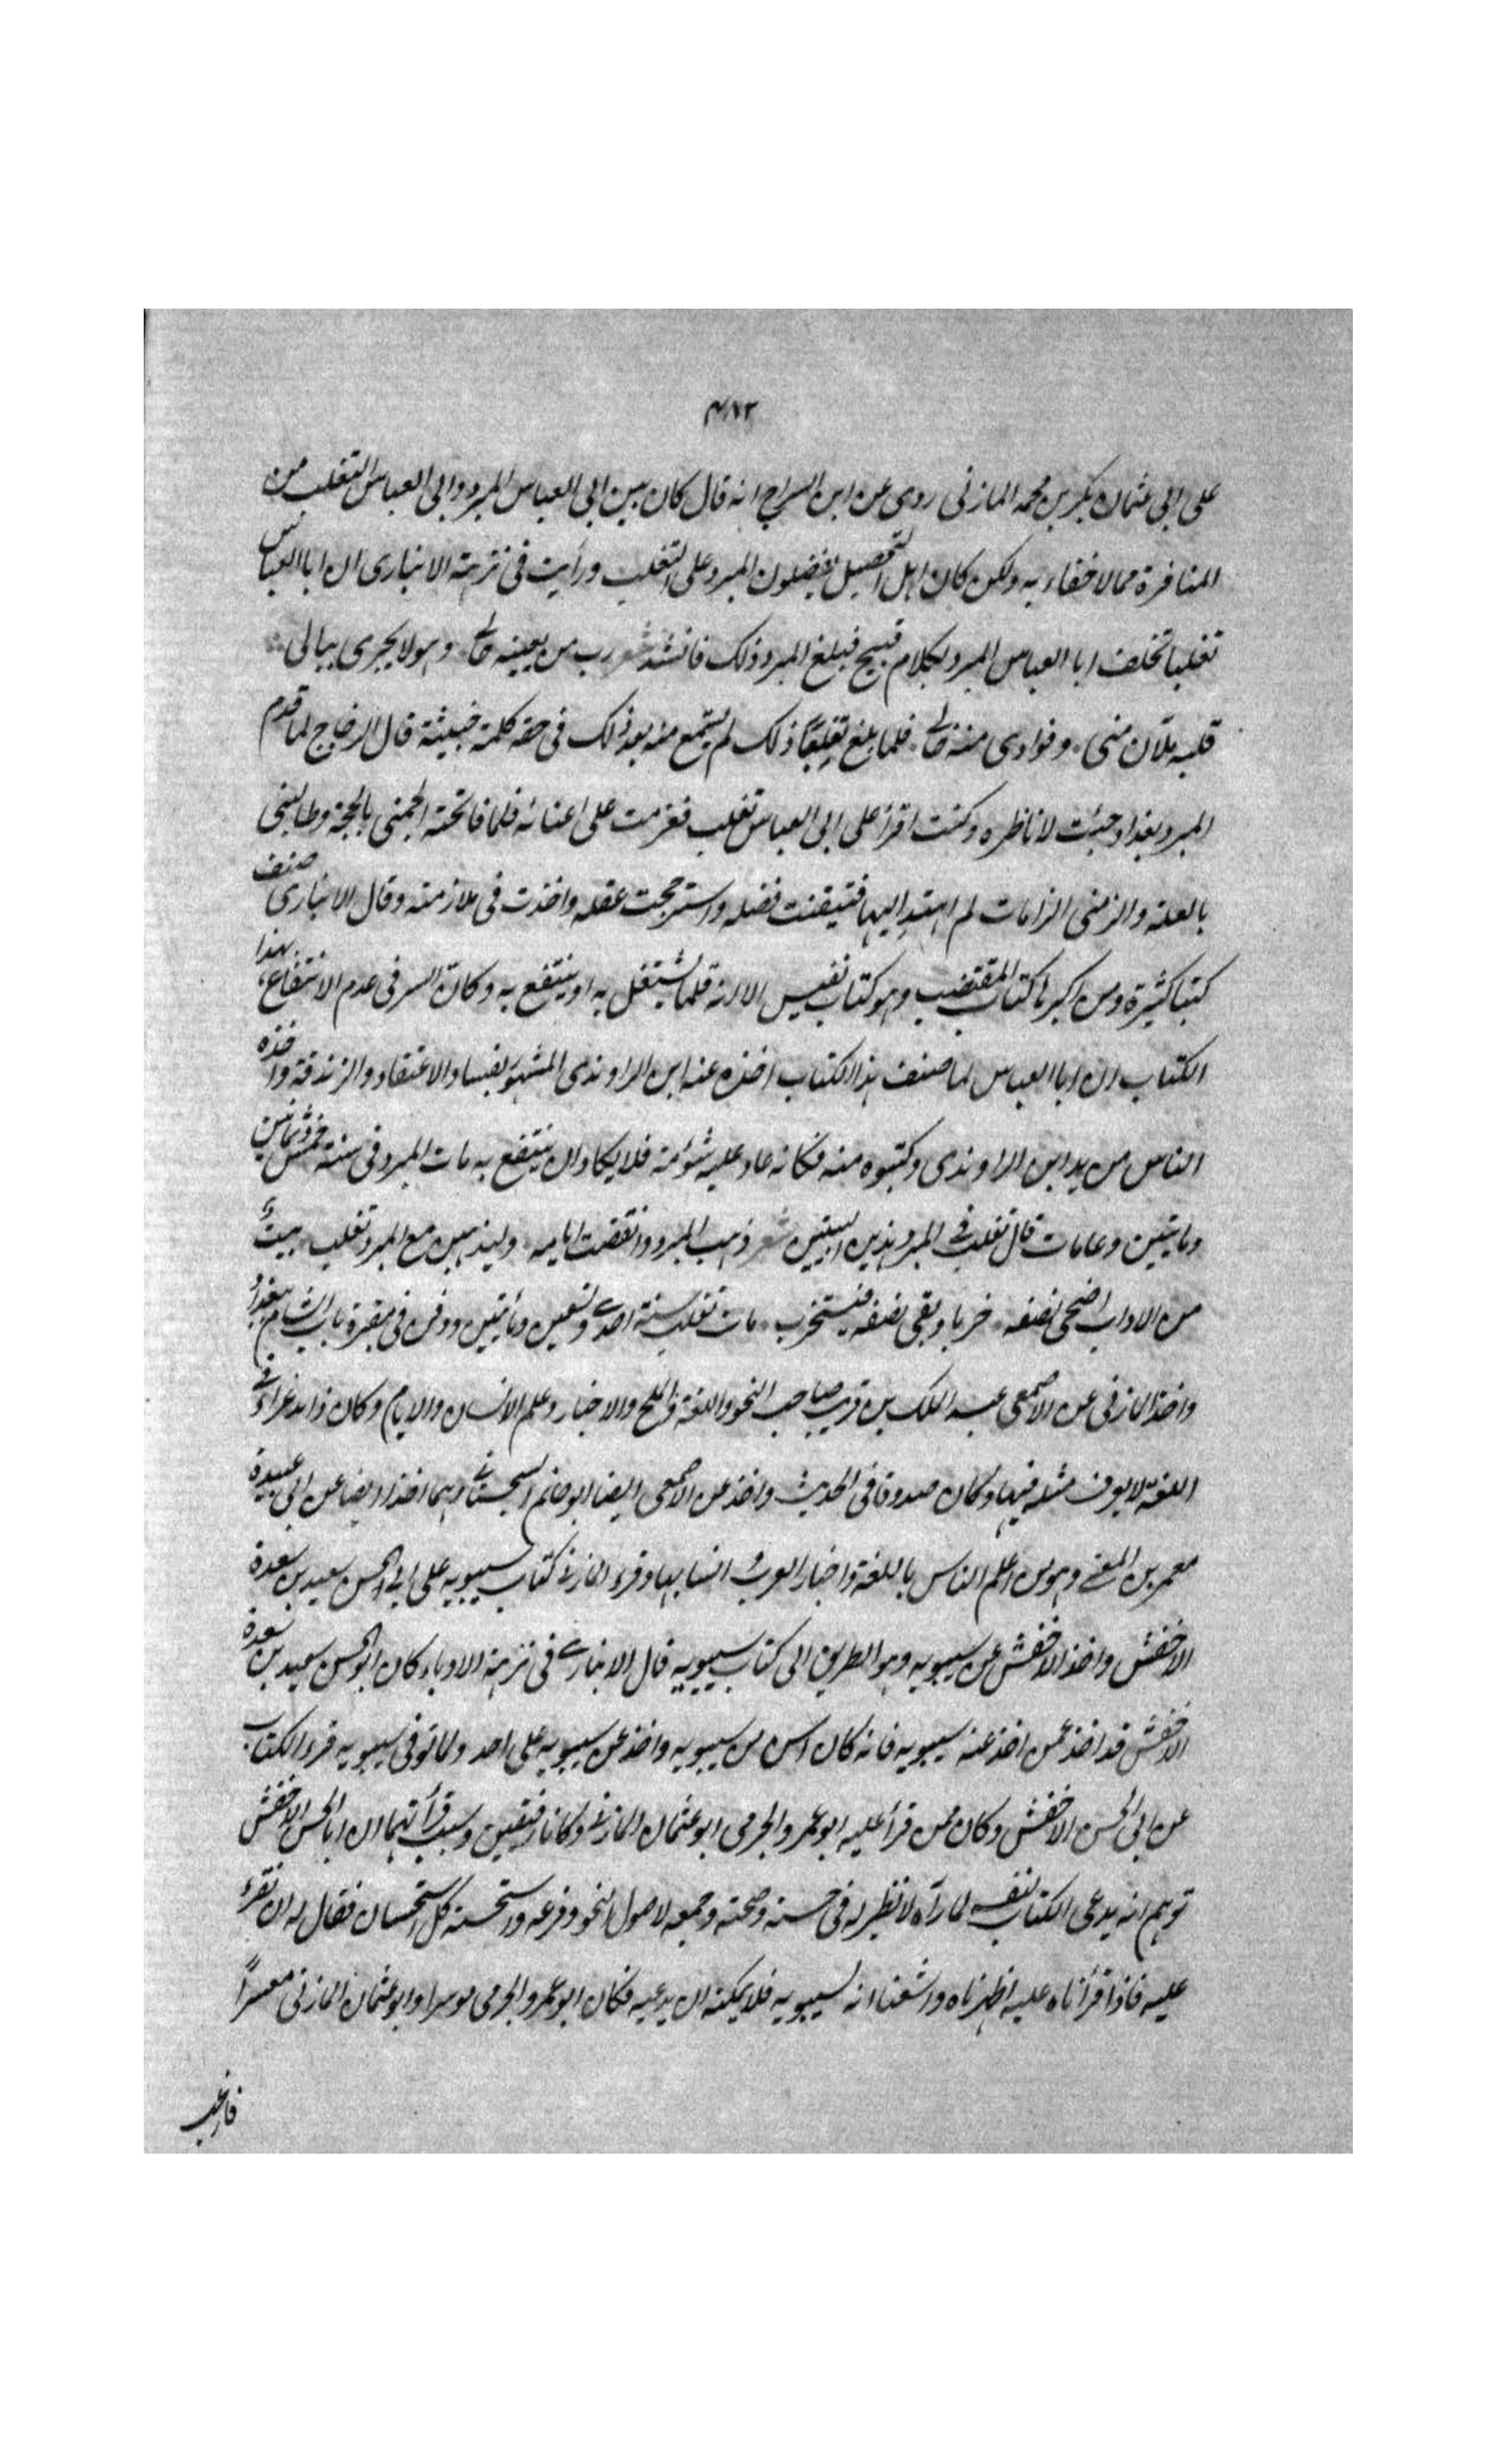 ٤٨٢
على ابى عثمان بكر بن محمد المازنى روى عن ابن السراج انه قال كان بين ابى العباس المبرد وابى العباس التغلب من
المنافرة ممالا خفاء به ولكن كان اهل التحصيل يفضلون المبرد على التغلب ورأيت فى نزهة الانبارى ان ابا العباس
تغلبا تخلف ابا العباس المبرد بكلام قبيح فبلغ المبرد ذلك فانشد شعر رب من يعينه حالى وهو لا يجرى ببالى
قلبه ملآن منى وفوادى منه خالى فلما بلغ تغلبًا ذلك لم يسمع منه بعد ذلك فى حقه كلمة خبيثة قال الزجاج لما قدم
المبرد بغداد جئت لاناظره وكنت اقرأ على ابى العباس تغلب فعزمت على اعناته فلما فاتحته الجمنى بالحجة وطالبنى
بالعلة والزمنى الزامات لم اهتد اليها فتيقنت فضله واسترجحت عقله واخذت فى ملازمته وقال الانبارى صنف
كتبا كثيرة ومن اكبرها كتاب المقتضب وهو كتاب نفيس الا انه قلما يشتغل به او ينتفع به وكان السر فى عدم الانتفاع بهذا
الكتاب ان ابا العباس لما صنف هذا الكتاب اخذه عنه ابن الراوندى المشهور بفساد الاعتقاد والزندقة واخذه
الناس من يد ابن الراوندى وكتبوه منه فكانه عاد عليه شؤمه فلا يكاد ان ينتفع به مات المبرد فى سنة خمس وثمانين
ومايتين وعامات قال تغلب فى المبرد هذين البيتين شعر ذهب المبرد وانقضت ايامه وليذهبن مع المبرد تغلب بيتٌ
من الاداب اضحى نصفه خربا وبقى نصفه فيستخرب مات تغلب سنة احدى وتسعين ومأيتين ودفن فى مقبرة باب الشام ببغداد
واخذ المازنى عن الاصمعى عبد الملك بن قريب صاحب النحو واللغة والملح والاخبار وعلم الانسان والايام وكان زايد غراء فى
اللغة لا يعرف مثله فيها وكان صدوقا فى الحديث واخذ عن الاصمعى ايضا ابو حاتم السجستانى وهما اخذا ايضا عن ابى عبيدة
معمر بن المثنى وهو من اعلم الناس باللغة واخبار العرب و انسابها وقرء المازنى كتاب سيبويه على ابى الحسن سعيد بن سعدة
الاخفش واخذ الاخفش عن سيبويه وهو الطريق الى كتاب سيبويه قال الانبارى فى نزهة الادباء كان ابو الحسن سعيد بن سعدة
الاخفش قد اخذ عمن اخذ عنه سيبويه فانه كان اسن من سيبويه واخذ عن سيبويه على احد ولما توفى سيبويه قرء الكتاب
عن ابى الحسن الاخفش وكان ممن قرأ عليه ابو عمر والجرمى ابو عثمان المازنى وكانا رفيقين وسبب قرأتهما ان ابا الحسن الاخفش
توهم انه يدعى الكتاب لنفسه لما رآه لا نظير له فى حسنه وصحته وجمعه لاصول النحو وفرعه واستحسنه كل استحسان فقال له ان نقرء
عليه فاذا قرأناه عليه اظهرناه واشعنا انه لسيبويه فلا يمكنه ان يدعيه فكان ابو عمر والجرمى موسرا وابو عثمان المازنى معسرًا
فارغب